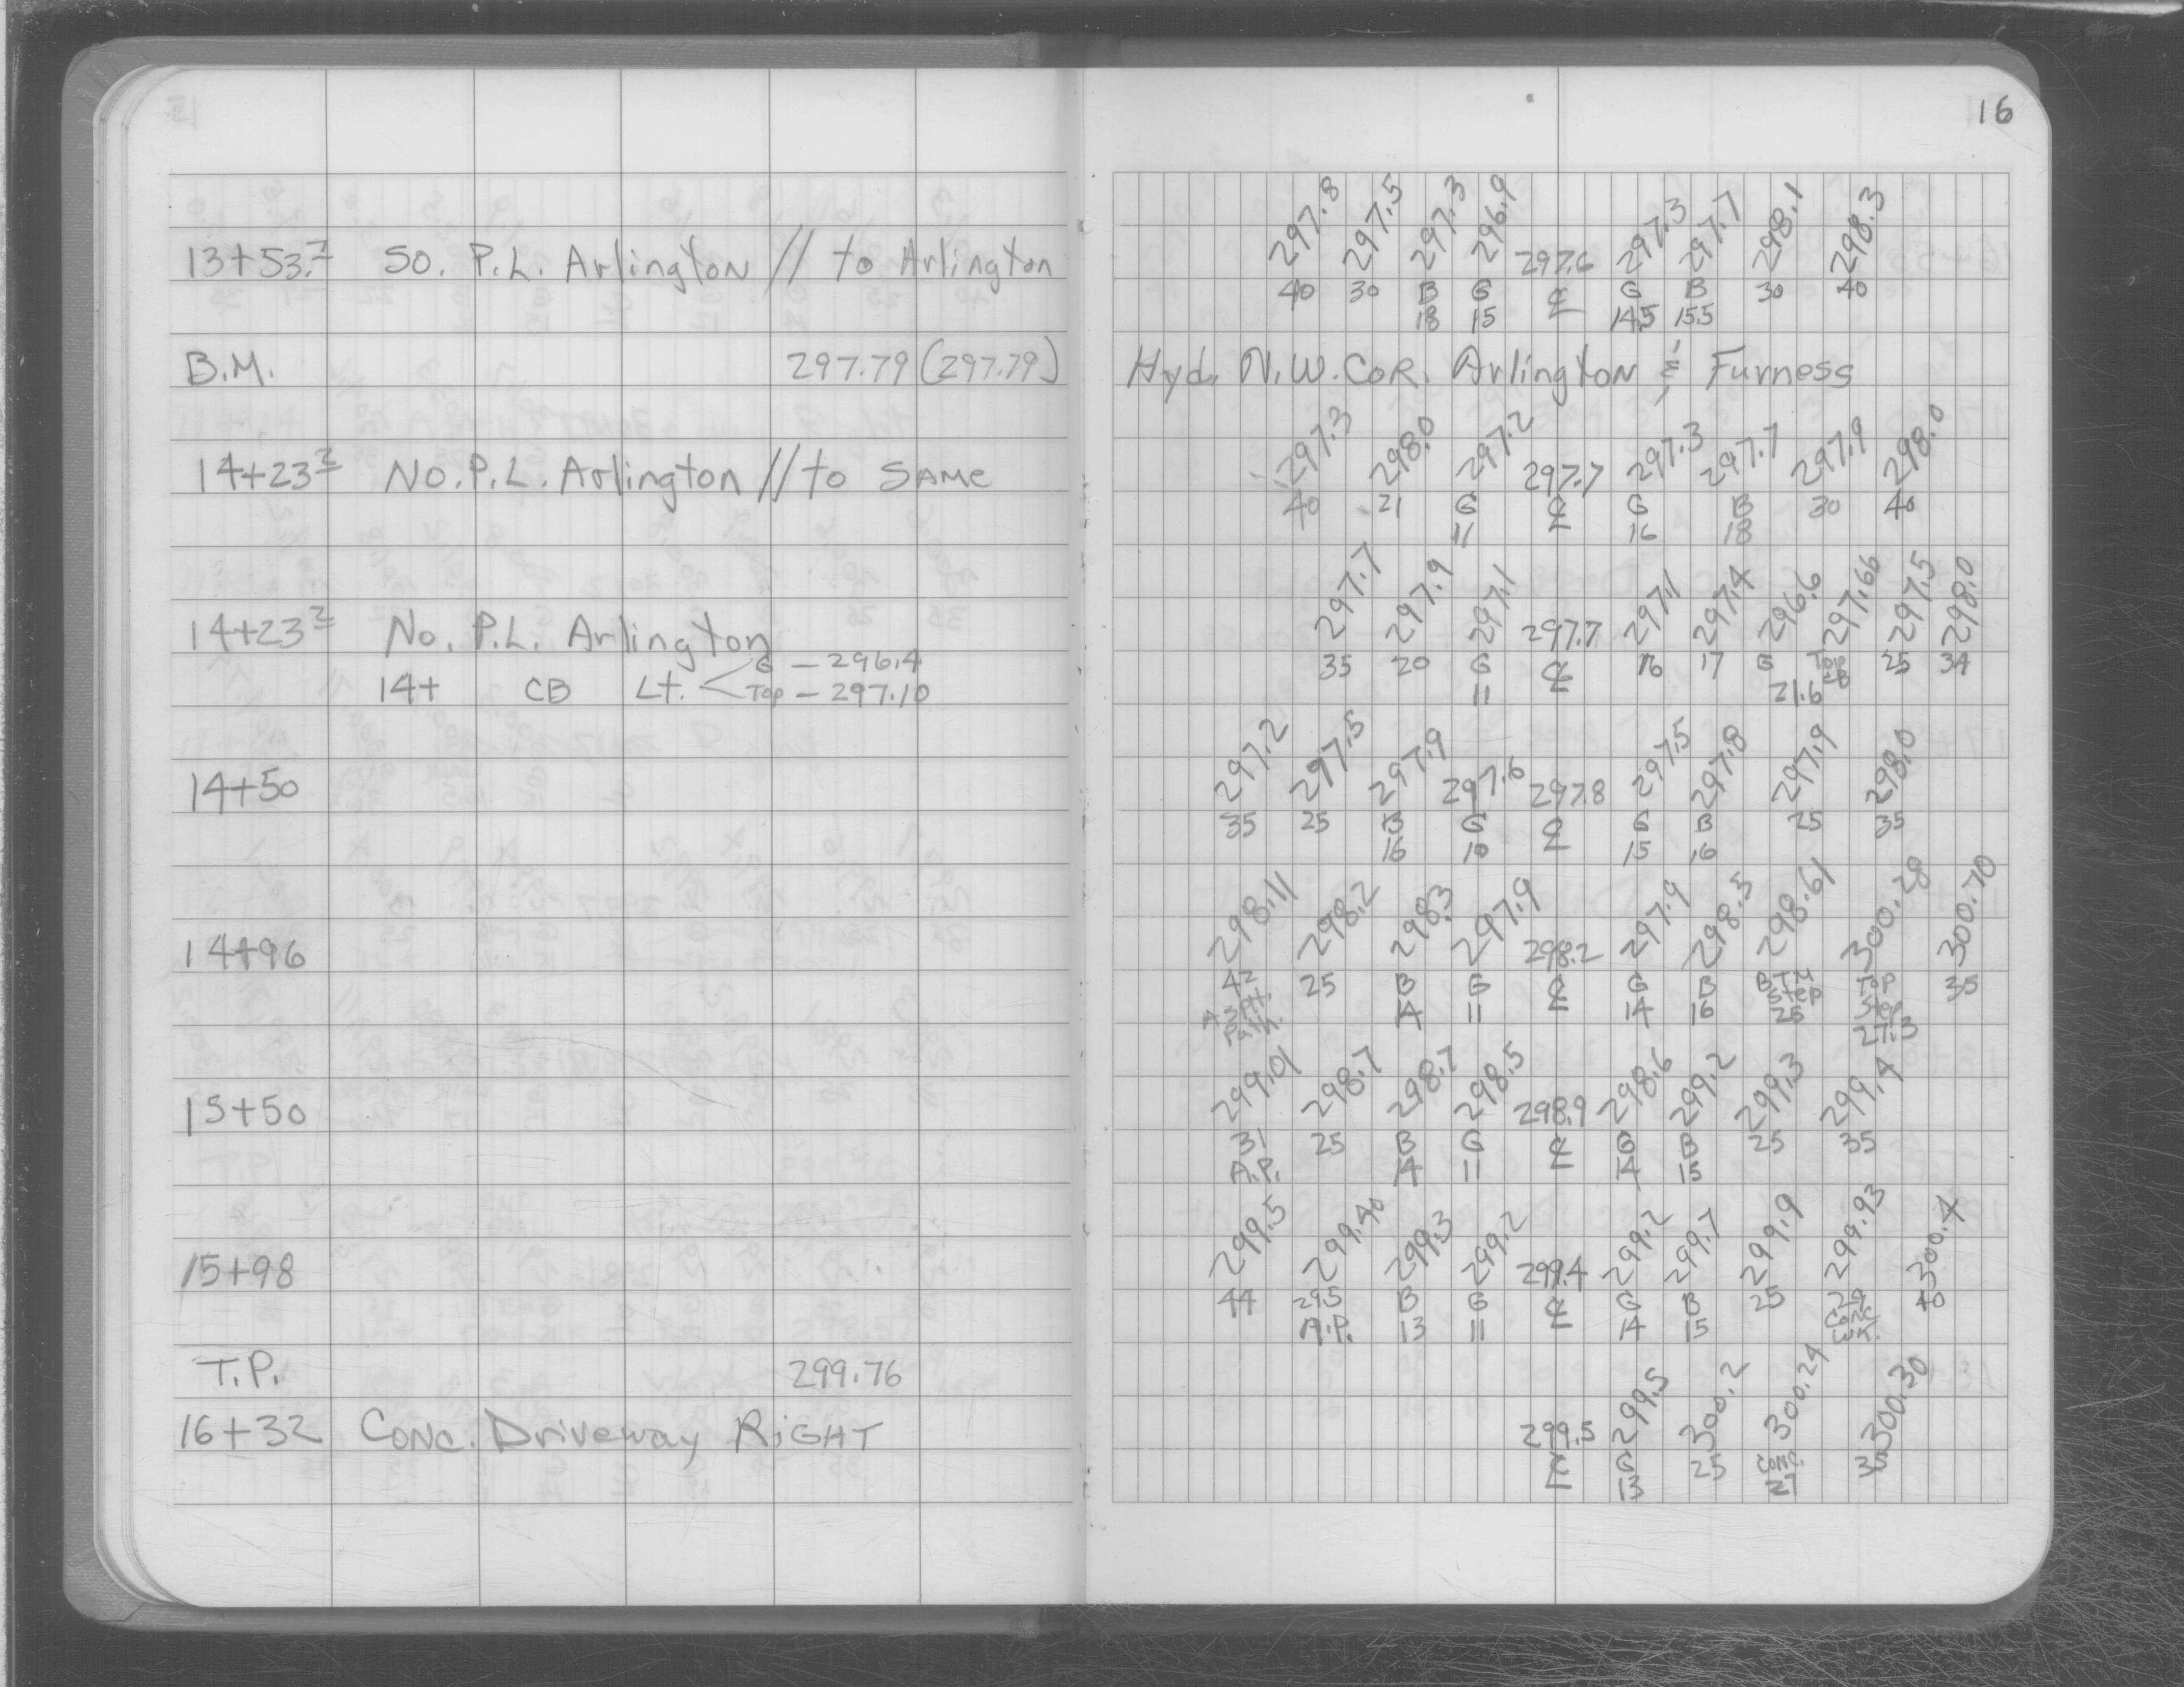 16
297.8 297.5 297.3 296.9 297.3 297.7 298.1 298.3
13+53.7 So. P.L. Arlington // to Arlington 297.6
40 30 B G ℄ G B 30 40
18 15 14.5 15.5
B.M. 297.79 (297.79) Hyd. N.W. COR. Arlington & Furness
297.3 298.0 297.2 297.3 297.7 297.9 298.0
14+23² No. P.L. Arlington // to SAME 297.7
40 21 G ℄ G B 30 40
11 16 18
297.7 297.9 297.1 297.1 297.4 296.6 297.66 297.5 298.0
14+23² No. P.L. Arlington 297.7
35 20 G ℄ 16 17 G Top CB 25 34
11 21.6
G – 296.4
14+ CB Lt. < Top – 297.10
297.2 297.5 297.9 297.6 297.5 297.8 297.9 298.0
14+50 297.8
35 25 B G ℄ G B 25 35
16 10 15 16
298.11 298.2 298.3 297.9 297.9 298.5 298.61 300.28 300.70
14+96 298.2
42 25 B G ℄ G B BTM Top 35
14 11 14 16 Step Step
25 27.3
299.01 298.7 298.7 298.5 298.6 299.2 299.3 299.4
15+50 298.9
31 25 B G ℄ G B 25 35
A.P. 14 11 14 15
299.5 299.40 299.3 299.2 299.2 299.7 299.9 299.93 300.4
15+98 299.4
44 29.5 B G ℄ G B 25 29 40
A.P. 13 11 14 15 Conc WK.
T.P. 299.76
299.5 300.2 300.24 300.30
16+32 Conc. Driveway RIGHT 299.5
℄ G 25 Conc. 35
13 27